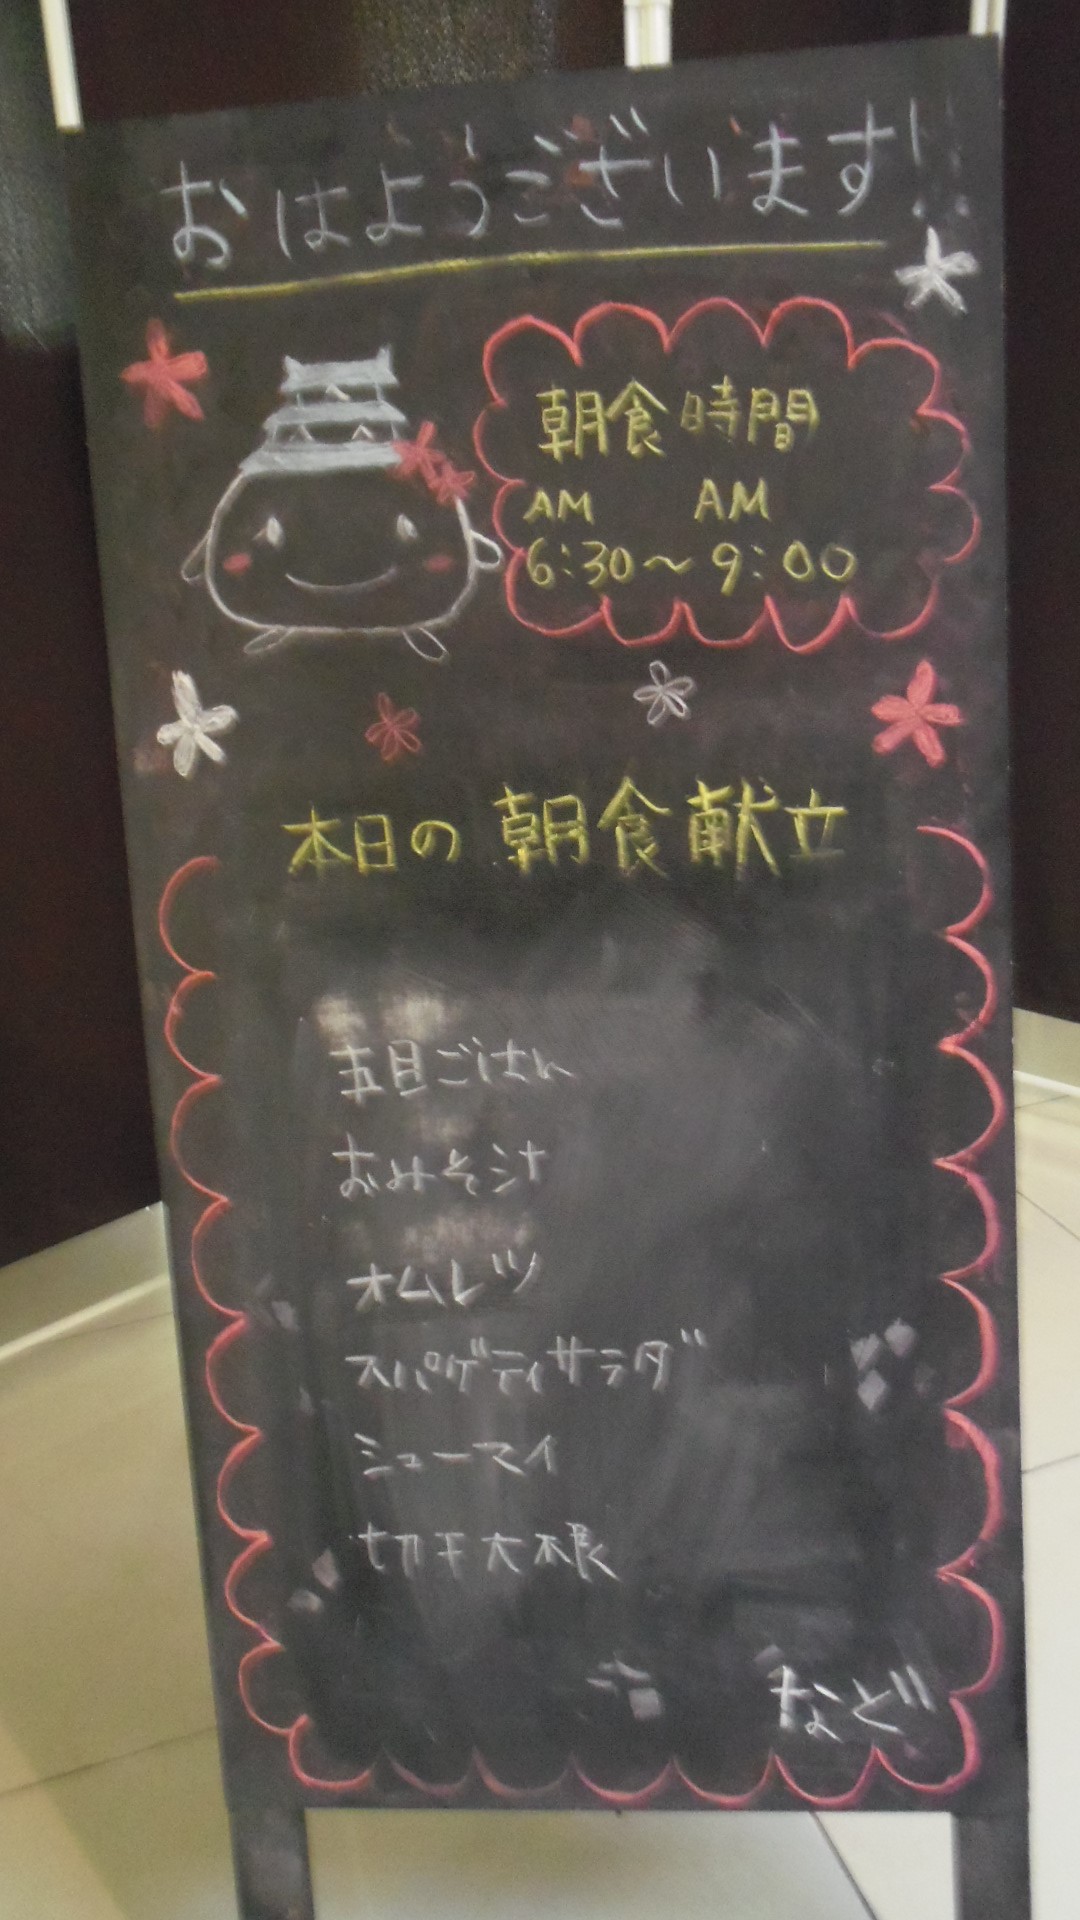 おはようございます!!
朝食時間
AM AM
6:30～9:00
本日の朝食献立
五目ごはん
おみそ汁
オムレツ
スパゲティサラダ
シューマイ
切干大根
など